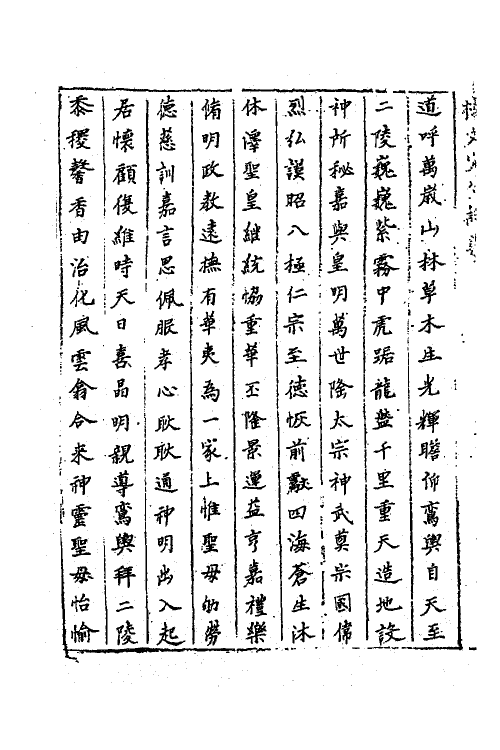 道呼萬嵗山林草木生光輝瞻仰鸞輿自天至
二陵巍巍紫霧中虎踞龍盤千里重天造地設
神所秘嘉與皇明萬世隆太宗神武奠宗國偉
烈弘謨昭八極仁宗至德恢前㒷四海蒼生沐
休澤聖皇繼統恊重華丕隆景運益亨嘉禮樂
脩明政教逺撫有華夷為一家上惟聖母劬勞
德慈訓嘉言思佩服孝心耿耿通神明出入起
居懐顧復維時天日喜晶明親導鸞輿拜二陵
黍稷馨香由治化風雲翕合来神靈聖母怡愉